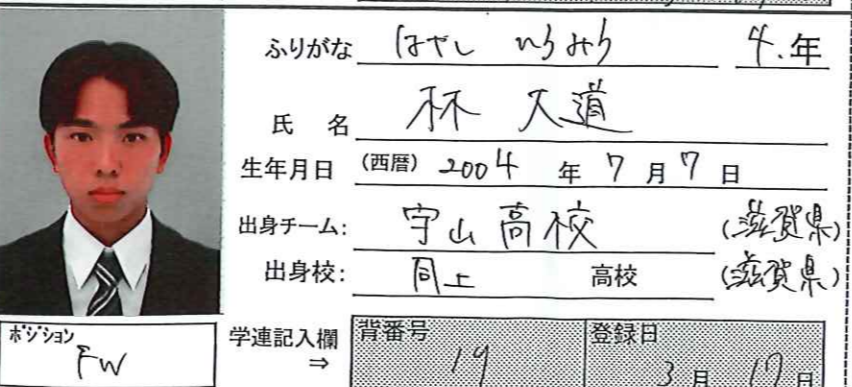 ふりがな はやし ひろみち 4.年
氏 名 林 大道
生年月日 (西暦) 2004 年 7 月 7 日
出身チーム: 守山高校 (滋賀県)
出身校: 同上 高校 (滋賀県)
ポジション FW
学連記入欄 ⇒ 背番号 19 登録日 3 月 17 日